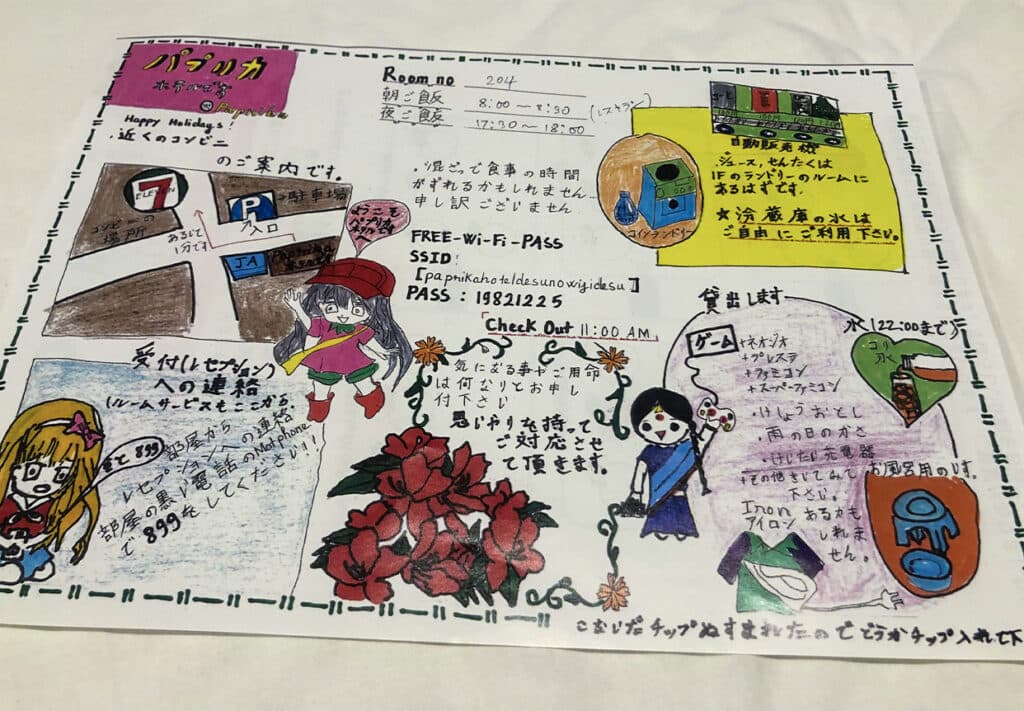 パプリカ
ホテルです
Paprika
Happy Holidays!
・近くのコンビニ
のご案内です。
7
ELEVEN
コンビニの
場所
あるいて
1分です
P
入口
→駐車場
JA
Paprika
ホテル
ようこそ
パプリカ
ホテルです
へ
Room no 204
朝ご飯 8:00～8:30 (レストラン)
夜ご飯 17:30～18:00
・混ざって食事の時間
がずれるかもしれません
申し訳ございません
FREE-Wi-Fi-PASS
SSID!
[paprikahoteldesunowifidesu]
PASS: 19821225
Check Out 11:00 AM
コインランドリー
自動販売機
・ジュース、せんたくは
1Fのランドリーのルームに
あるはずです。
★冷蔵庫の水は
ご自由にご利用下さい。
受付(レセプション)
への連絡
(ルームサービスもここから
まで 899
部屋から
レセプションへの連絡
部屋の黒い電話のNot phone
で899をしてください!!
気になる事やご用命
は何なりとお申し
付下さい
思いやりを持って
ご対応させ
て頂きます。
貸出します
ゲーム
+ネオジオ
+プレステ
+ファミコン
+スーパーファミコン
・けしょうおとし
・雨の日のかさ
・けいたい充電器
+その他きいてみて
下さい。
Iron
アイロン
あるかも
しれま
せん。
氷(22:00まで)
コリ
氷
お風呂用のです。
こないだチップぬすまれたのでどうかチップ入れて下